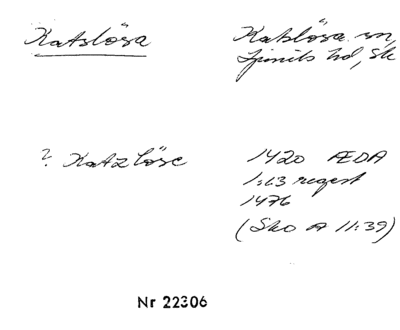 Katslösa
Katslösa sn,
Ljunits hd, Sk
? Katzlöse
1420 ÆDA
1:63 regest
1476
(Sko A 11:39)
Nr 22306